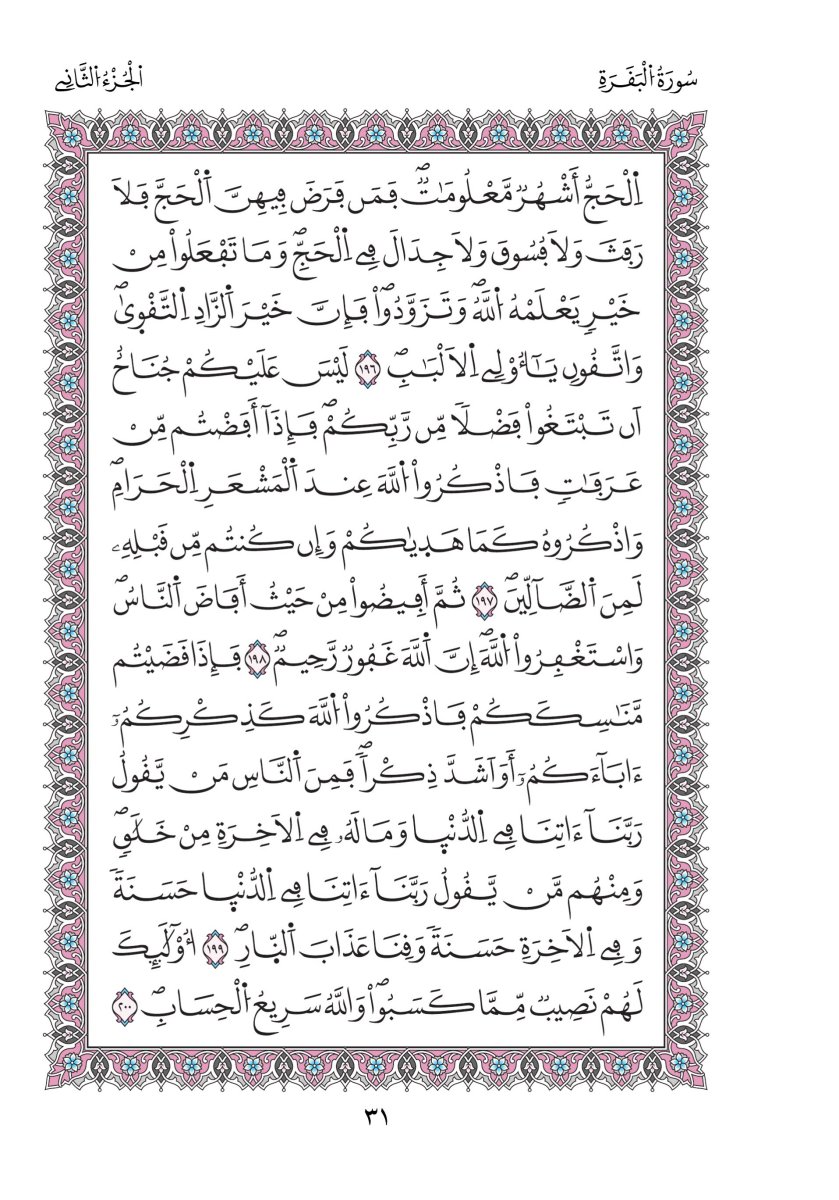 سُورَةُ اُ۬لْبَقَرَةِ
اَ۬لْجُزْءُ اُ۬لثَّانِي
اِ۬لْحَجُّ أَشْهُرٌ مَّعْلُومَٰتٌۖ فَمَن فَرَضَ فِيهِنَّ اَ۬لْحَجَّ فَلَا
رَفَثَ وَلَا فُسُوقَ وَلَا جِدَالَ فِي اِ۬لْحَجِّۖ وَمَا تَفْعَلُواْ مِنْ
خَيْرٖ يَعْلَمْهُ اُ۬للَّهُۖ وَتَزَوَّدُواْۖ فَإِنَّ خَيْرَ اَ۬لزَّادِ اِ۬لتَّقْو۪ىٰۖ
وَاتَّقُونِ يَٰٓأُوْلِي اِ۬لَالْبَٰبِۖ ١٩٦ لَيْسَ عَلَيْكُمْ جُنَاحٌ
اَن تَبْتَغُواْ فَضْلاٗ مِّن رَّبِّكُمْۖ فَإِذَآ أَفَضْتُم مِّنْ
عَرَفَٰتٖ فَاذْكُرُواْ اُ۬للَّهَ عِندَ اَ۬لْمَشْعَرِ اِ۬لْحَرَامِۖ
وَاذْكُرُوهُ كَمَا هَد۪يٰكُمْ وَإِن كُنتُم مِّن قَبْلِهِۦ
لَمِنَ اَ۬لضَّآلِّينَۖ ١٩٧ ثُمَّ أَفِيضُواْ مِنْ حَيْثُ أَفَاضَ اَ۬لنَّاسُۖ
وَاسْتَغْفِرُواْ اُ۬للَّهَۖ إِنَّ اَ۬للَّهَ غَفُورٞ رَّحِيمٞۖ ١٩٨ فَإِذَا قَضَيْتُم
مَّنَٰسِكَكُمْ فَاذْكُرُواْ اُ۬للَّهَ كَذِكْرِكُمُۥٓ
ءَابَآءَكُمُۥٓ أَوَ اَشَدَّ ذِكْراٗۖ فَمِنَ اَ۬لنَّاسِ مَنْ يَّقُولُ
رَبَّنَآ ءَاتِنَا فِي اِ۬لدُّنْي۪ا وَمَا لَهُۥ فِي اِ۬لَاخِرَةِ مِنْ خَلَٰقٖۖ
وَمِنْهُم مَّنْ يَّقُولُ رَبَّنَآ ءَاتِنَا فِي اِ۬لدُّنْي۪ا حَسَنَةٗ
وَفِي اِ۬لَاخِرَةِ حَسَنَةٗ وَقِنَا عَذَابَ اَ۬لنّ۪ارِۖ ١٩٩ أُوْلَٰٓئِكَ
لَهُمْ نَصِيبٞ مِّمَّا كَسَبُواْۖ وَاللَّهُ سَرِيعُ اُ۬لْحِسَابِۖ ٢٠٠
٣١